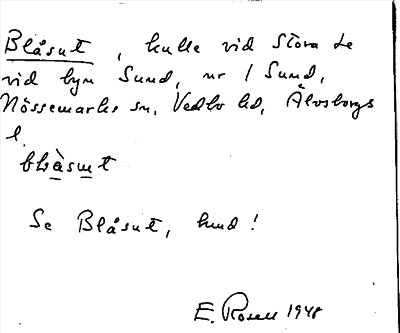 Blåsut, kulle vid Stora Le
vid byn Sund, nr 1 Sund,
Nössemarks sn, Vedbo hd, Älvsborgs
l.
blàsut
Se Blåsut, hund!
E. Rosell 1948